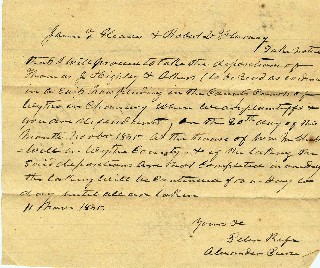 James T. Gleaves & Robert D.
Take notice
that I will proceed to take the depositions of
Thomas J. Higley & others (to be read as evidence
in a suit now pending in the County Court of
Wythe in Chancery Where we are plaintiffs &
you are defendants, on the 20th day of this
Month Nov br 1845 at the House of Wm. M.
-well in Wythe County & if the taking the
said depositions are not completed in one day
the taking will be continued from day to
day until all are taken
11 Nov br 1845.
Yours &c
Peter
Alexander